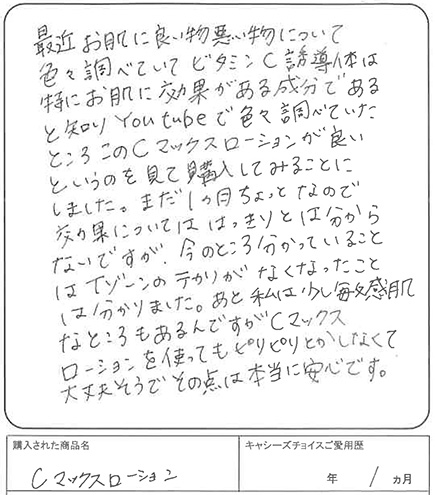 最近お肌に良い物悪い物について
色々調べていてビタミンC誘導体は
特にお肌に効果がある成分である
と知りYoutubeで色々調べていた
ところこのCマックスローションが良い
というのを見て購入してみることに
しました。まだ1ヵ月ちょっとなので
効果についてははっきりとは分から
ないですが、今のところ分かっていること
はTゾーンのテカリがなくなったこと
は分かりまいた。あと私は少し敏感肌
なところもあるんですがCマックス
ローションを使ってもピリピリとかしなくて
大丈夫そうでその点は本当に安心です。
購入された商品名
Cマックスローション
キャシーズチョイスご愛用歴
年 1 ヵ月